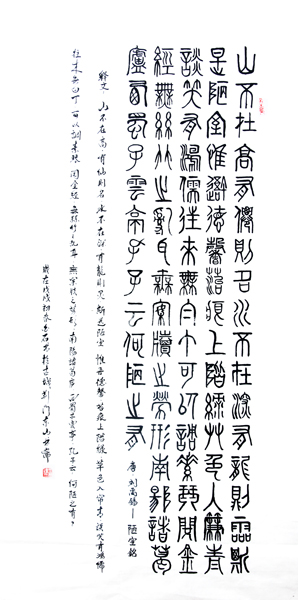 山不在高有僊則名水不在深有龍則靈斯
是陋室惟吾德馨苔痕上階綠艸色入簾青
談笑有鴻儒往來無白丁可以調素琴閱金
經無絲竹之亂耳無案牘之勞形南陽諸葛
廬西蜀子雲亭孔子云何陋之有
唐 刘禹锡——陋室铭
释文 山不在高有仙则名 水不在深有龙则灵 斯是陋室 惟吾德馨 苔痕上阶绿 草色入帘青 谈笑有鸿儒
往来无白丁 可以调素琴 阅金经 无丝竹之乱耳 無案牍之劳形 南阳诸葛庐 西蜀子云亭 孔子云 何陋之有？
岁在戊戌初冬 于古城荆门东山